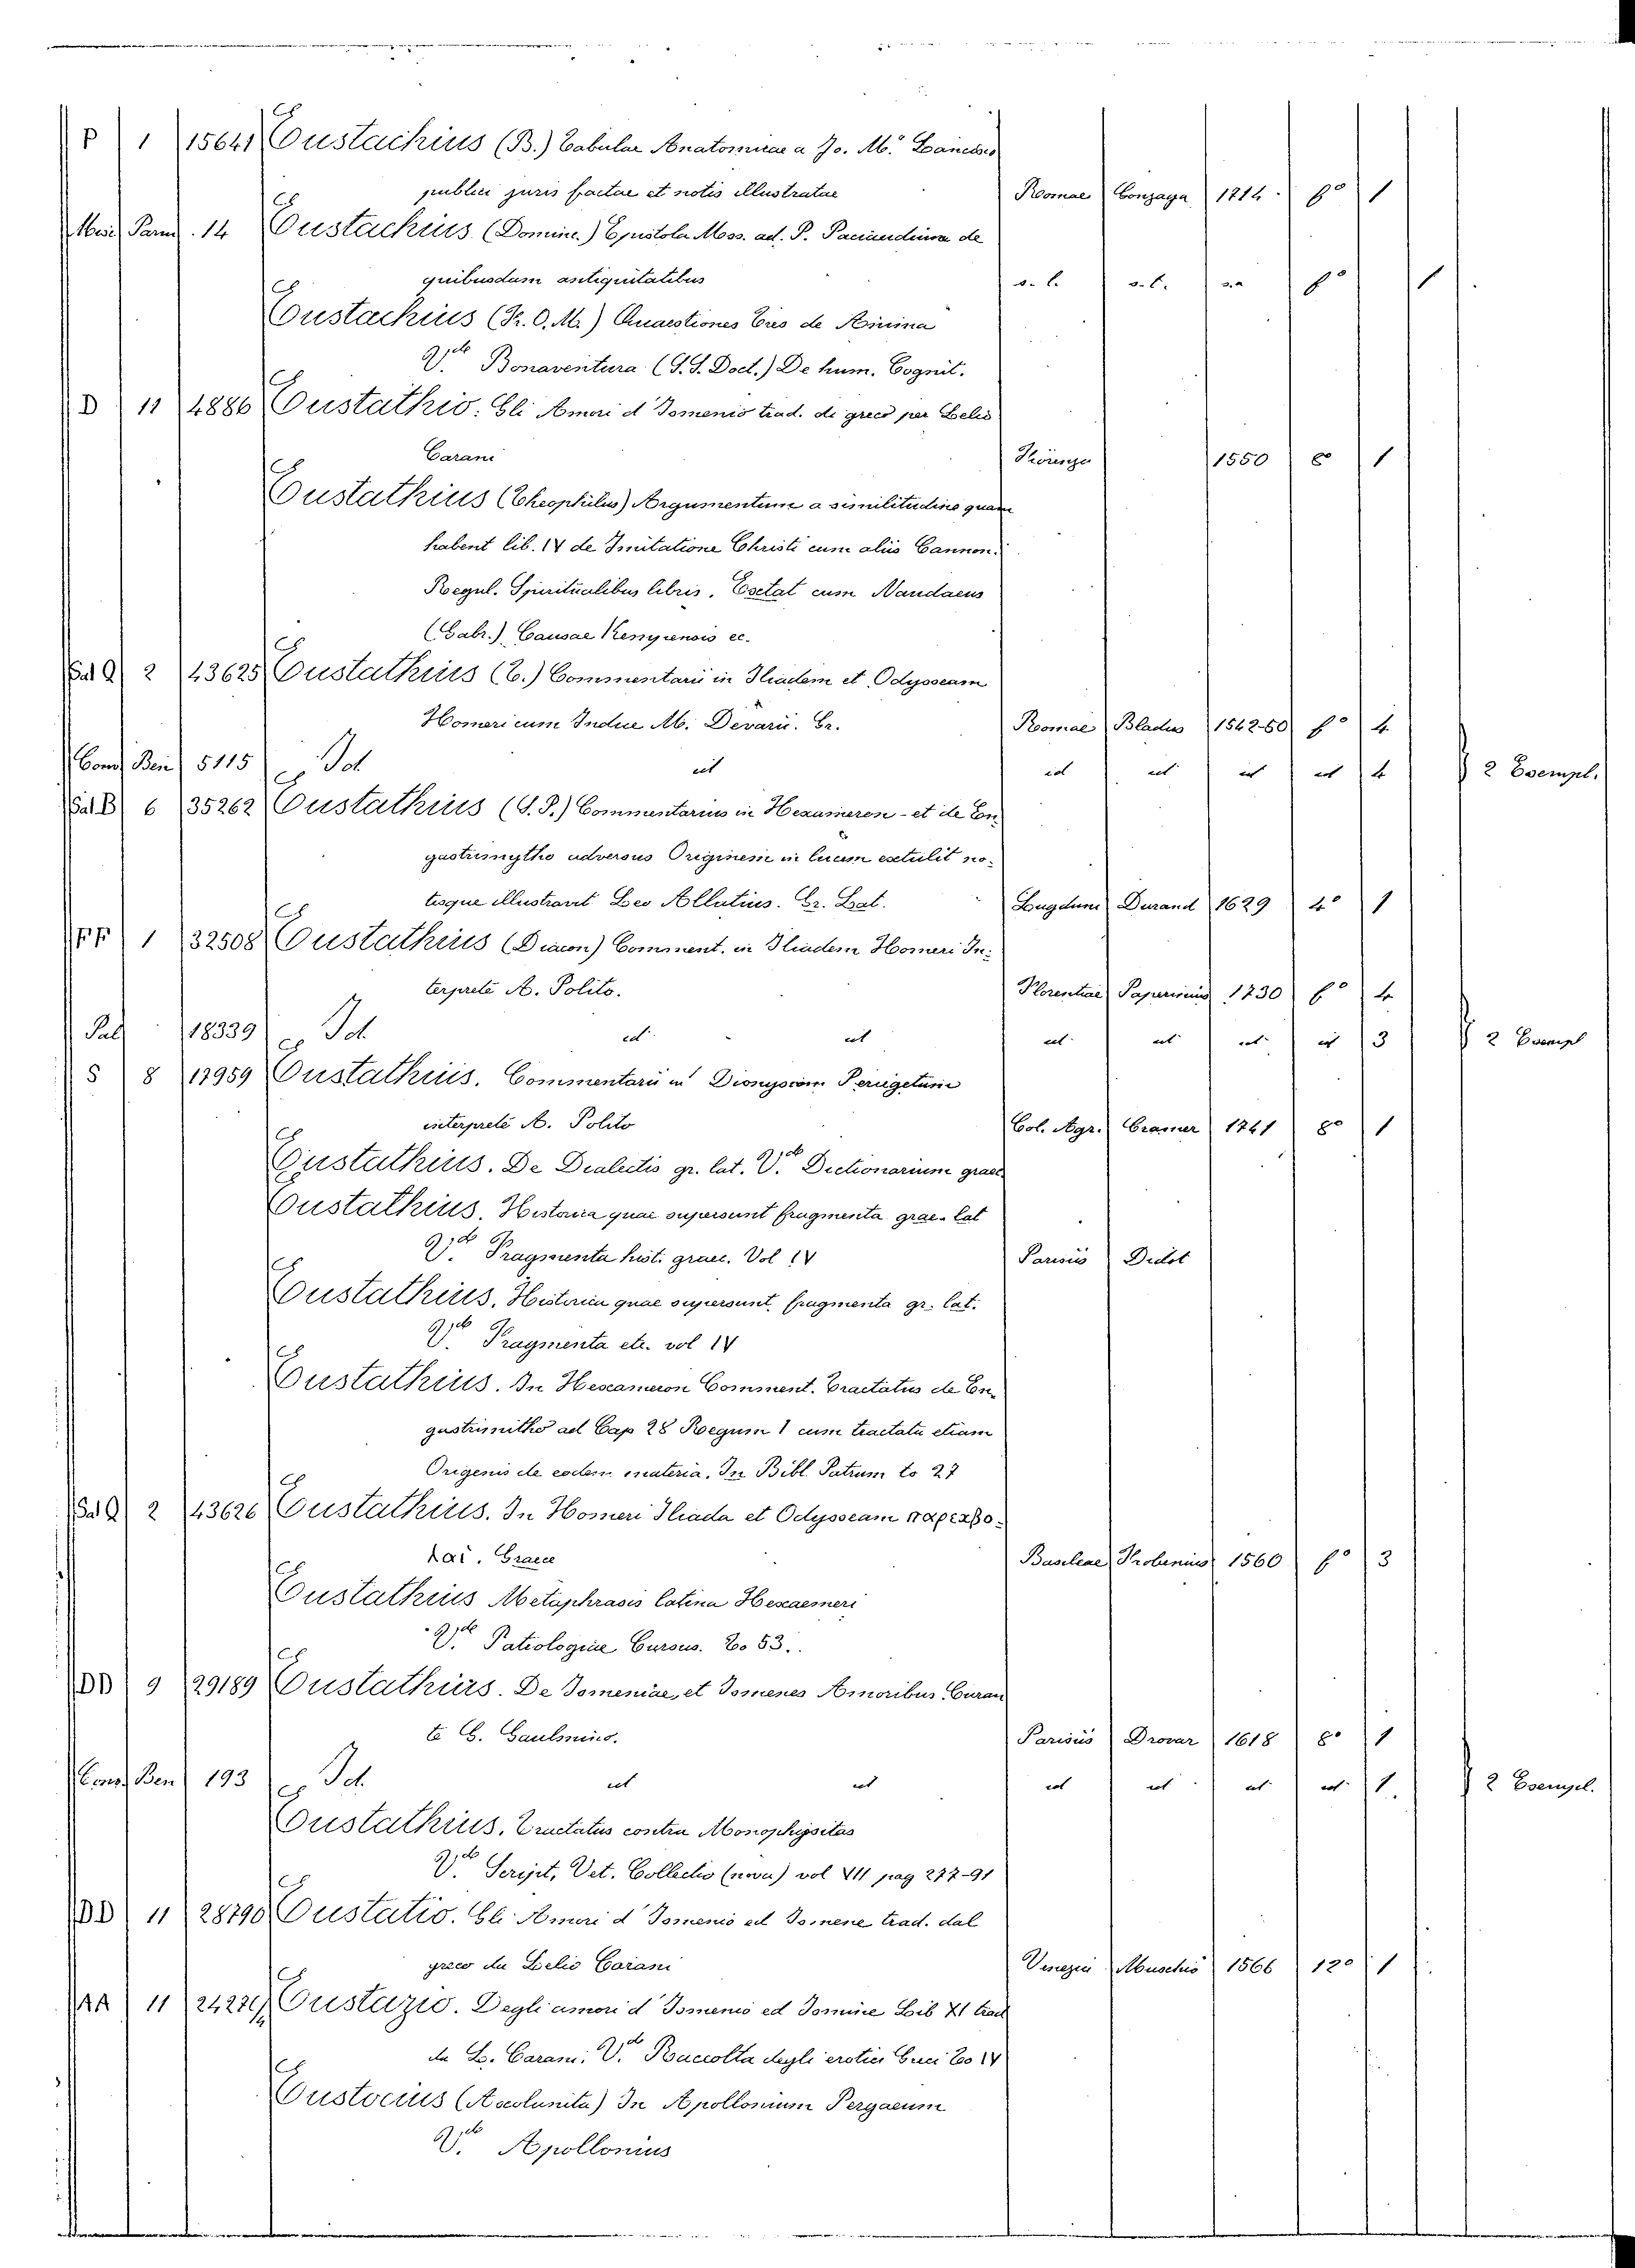 P 1 15641 Eustachius (B.) Tabulae Anatomicae a Jo. M.ª Lancisio
publici juris factae et notis illustratae Romae Gonzaga 1714 f° 1
Parm. 14 Eustachius (Domin.) Epistola Mss. ad. P. Paciaudium de
quibusdam antiquitatibus s. l. s. t. s.a f° 1
Eustachius (Fr. O. M.) Quaestiones tres de Anima
V.de Bonaventura (S. S. Doct.) De hum. Cognit.
D 11 4886 Eustathio. Gli Amori d'Ismenio trad. di greco per Lelio
Carani Fiorenza 1550 8° 1
Eustathius (Theophilus) Argumentum a similitudine quam
habent lib. IV de Imitatione Christi cum aliis Cannon.
Regul. Spiritualibus libris. Extat cum Naudaeus
(Gabr.) Causae Kempensis ec.
Sal Q 2 43625 Eustathius (T.) Commentarii in Iliadem et Odysseam
Homeri cum Indice M. Devarii. Gr. Romae Bladus 1542-50 f° 4
Cons Ben 5115 Id. id id id id id 4 2 Esempl.
Sal B 6 35262 Eustathius (S. P.) Commentarius in Hexameron - et de En-
gastrimytho adversus Originem in lucem extulit no-
tisque illustravit Leo Allatius. Gr. Lat. Lugduni Durand 1629 4° 1
FF 1 32508 Eustathius (Diacon) Comment. in Iliadem Homeri In-
terprete A. Polito. Florentiae Paperinius 1730 f° 4
Pal 18339 Id. id id id id id id 3 2 Esempl
S 8 17959 Eustathius. Commentarii in Dionysium Periegetum
interprete A. Polito Col. Agr. Cramer 1741 8° 1
Eustathius. De Dialectis gr. lat. V.de Dictionarium graec.
Eustathius. Historia quae supersunt fragmenta grae. lat
V.de Fragmenta hist. graec. Vol IV Parisiis Didot
Eustathius, Historia quae supersunt fragmenta gr. lat.
V.de Fragmenta etc. vol IV
Eustathius. In Hexameron Comment. Tractatus de En-
gastrimitho ad Cap 28 Regum 1 cum tractatu etiam
Origenis de eodem materia. In Bibl. Patrum to 27
Sal Q 2 43626 Eustathius. In Homeri Iliada et Odysseam παρεκβο-
λαι. Graece Basileae Frobenius 1560 f° 3
Eustathius Metaphrasis latina Hexaemeri
V.de Patrologiae Cursus. To 53.
DD 9 29189 Eustathius. De Ismeniae, et Ismenes Amoribus Curan
te G. Gaulmino. Parisiis Drovar 1618 8° 1
Cons Ben 193 Id. id id id id id id 1. 2 Esempl.
Eustathius, Tractatus contra Monophysitas
V.de Script. Vet. Collectio (nova) vol VII pag 277-91
DD 11 28790 Eustatio. Gli Amori d'Ismenio ed Ismene trad. dal
greco da Lelio Carani Venezia Muschio 1566 12° 1
AA 11 Eustazio. Degli amori d'Ismenio ed Ismine Lib XI trad
da L. Carani. V.de Raccolta degli erotici Greci To IV
Eustocius (Ascolunita) In Apollonium Pergaeum
V.de Apollonius